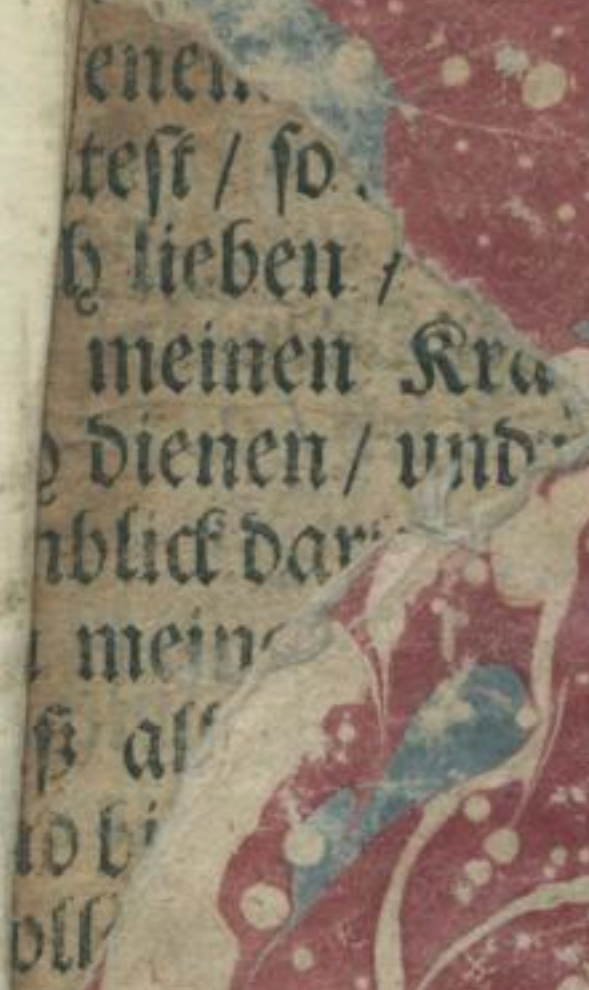 enen
test / so
h lieben /
meinen Kra
dienen / und
nblick dar
mein
ß al
nd bi
oll